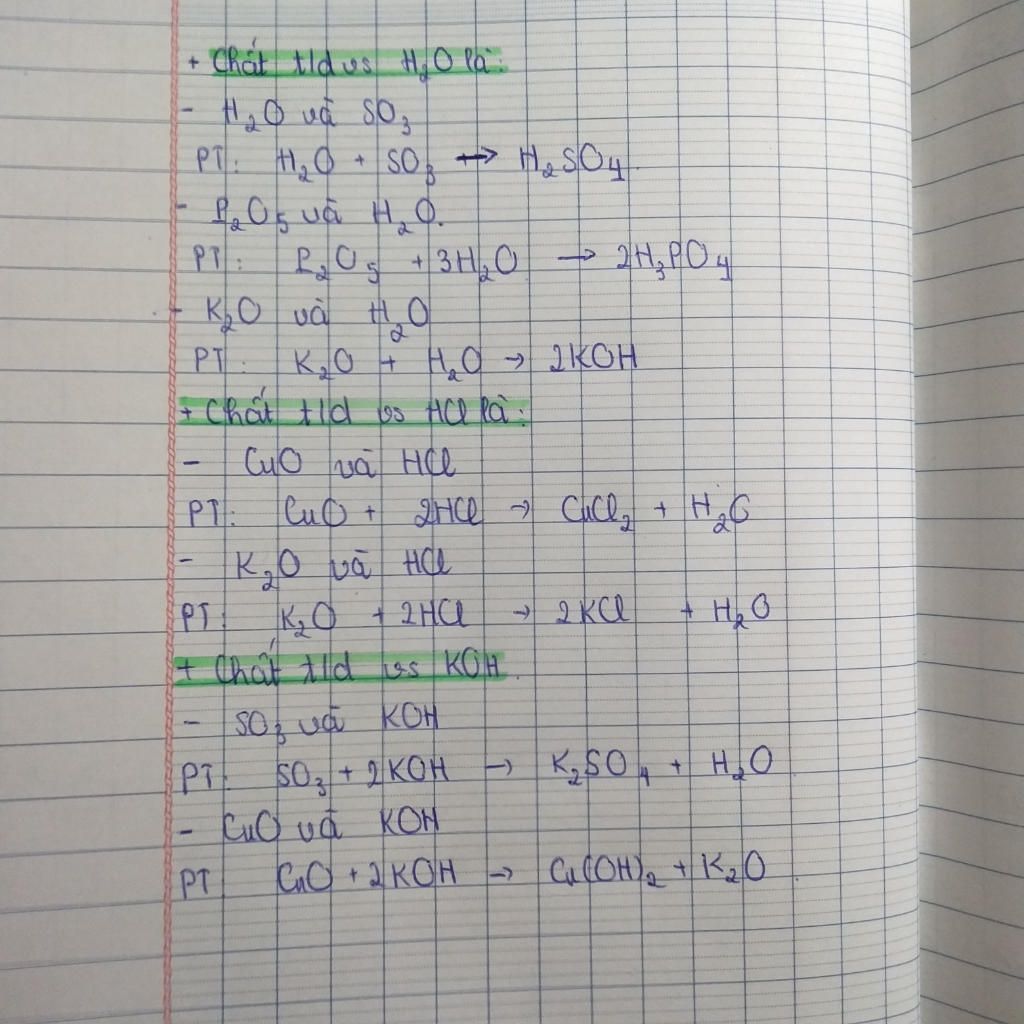 + Chất t/d vs H₂O là:
- H₂O và SO₃
PT: H₂O + SO₃ → H₂SO₄.
- P₂O₅ và H₂O.
PT: P₂O₅ + 3H₂O → 2H₃PO₄
- K₂O và H₂O
PT: K₂O + H₂O → 2KOH
+ Chất t/d vs HCl là:
- CuO và HCl
PT: CuO + 2HCl → CuCl₂ + H₂O
- K₂O và HCl
PT: K₂O + 2HCl → 2KCl + H₂O
+ Chất t/d vs KOH.
- SO₃ và KOH
PT: SO₃ + 2KOH → K₂SO₄ + H₂O
- CuO và KOH
PT CuO + 2KOH → Cu(OH)₂ + K₂O.